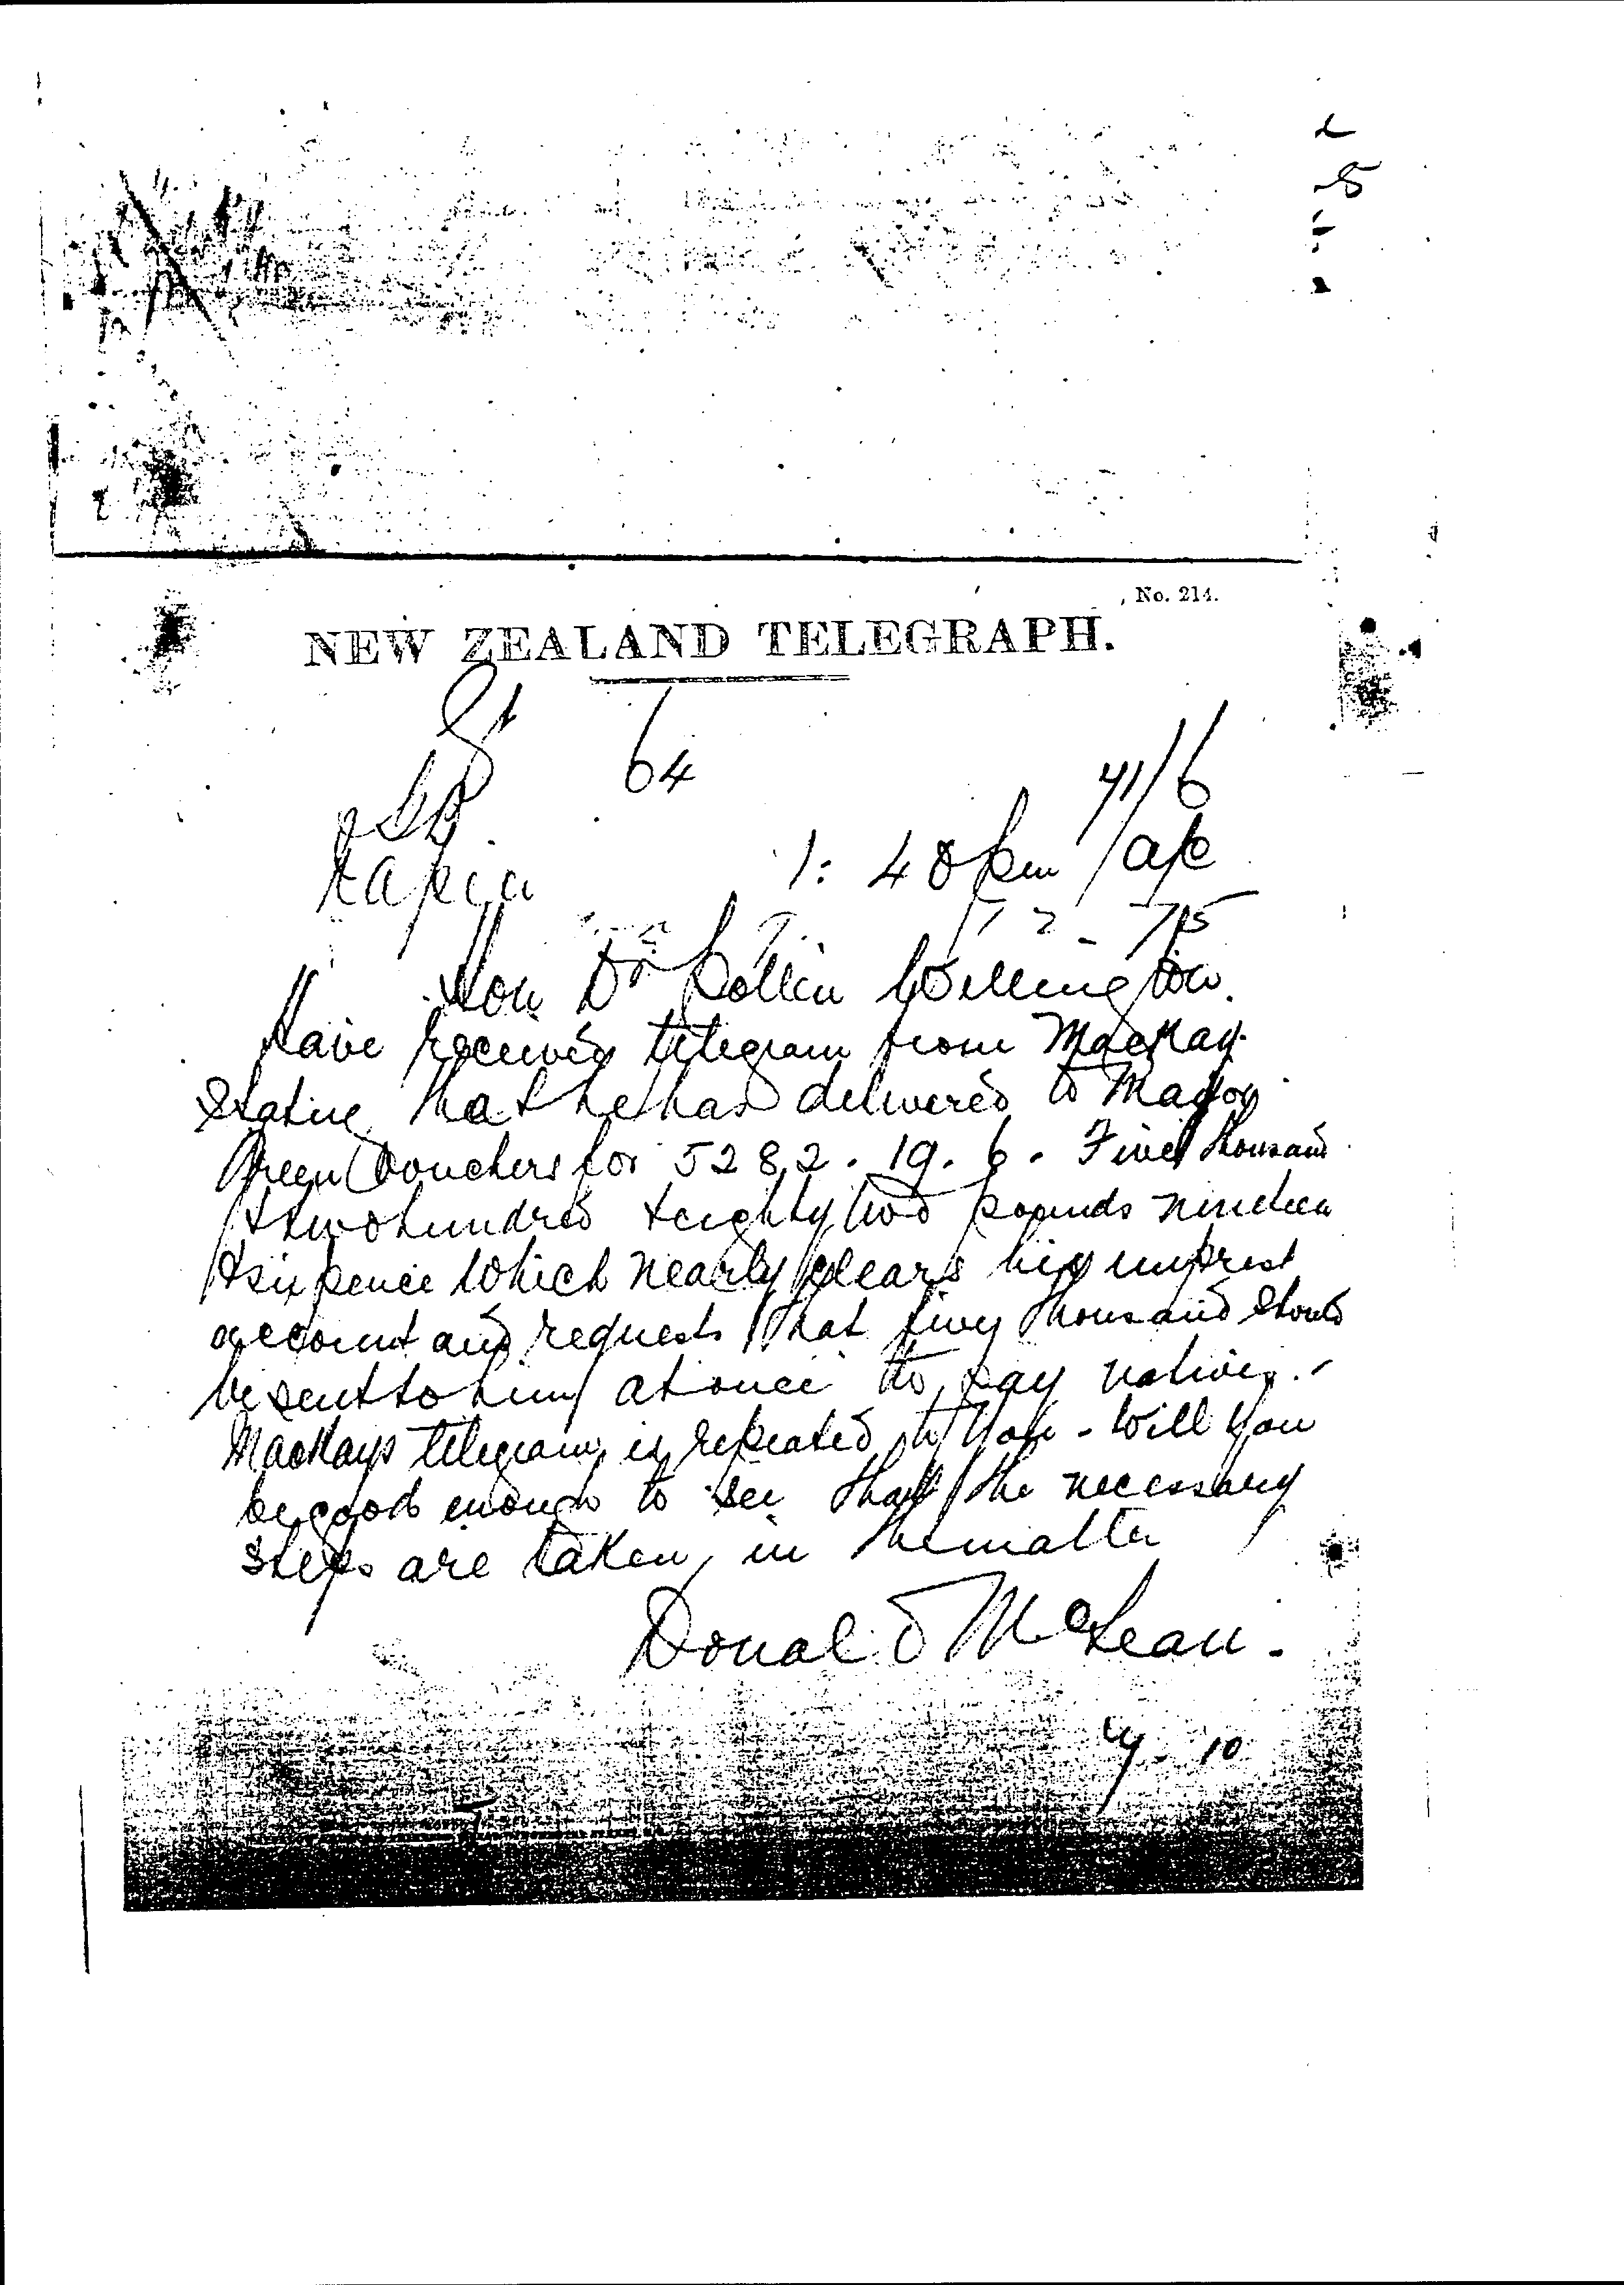 No. 214.
NEW ZEALAND TELEGRAPH.
64
41/6
Napier 1: 40 pm a/c
Hon Dr Pollen Wellington.
Have received telegram from Mackay
Stating that he has delivered to Major
Green Vouchers for 5282. 19. 6. Five thousand
& two hundred & eighty two pounds nineteen
& sixpence which nearly clears his imprest
account and requests that five thousand should
be sent to him at once to pay natives.
Mackays telegram is repeated to you - Will you
be good enough to see that the necessary
steps are taken in the matter
Donald McLean.
10